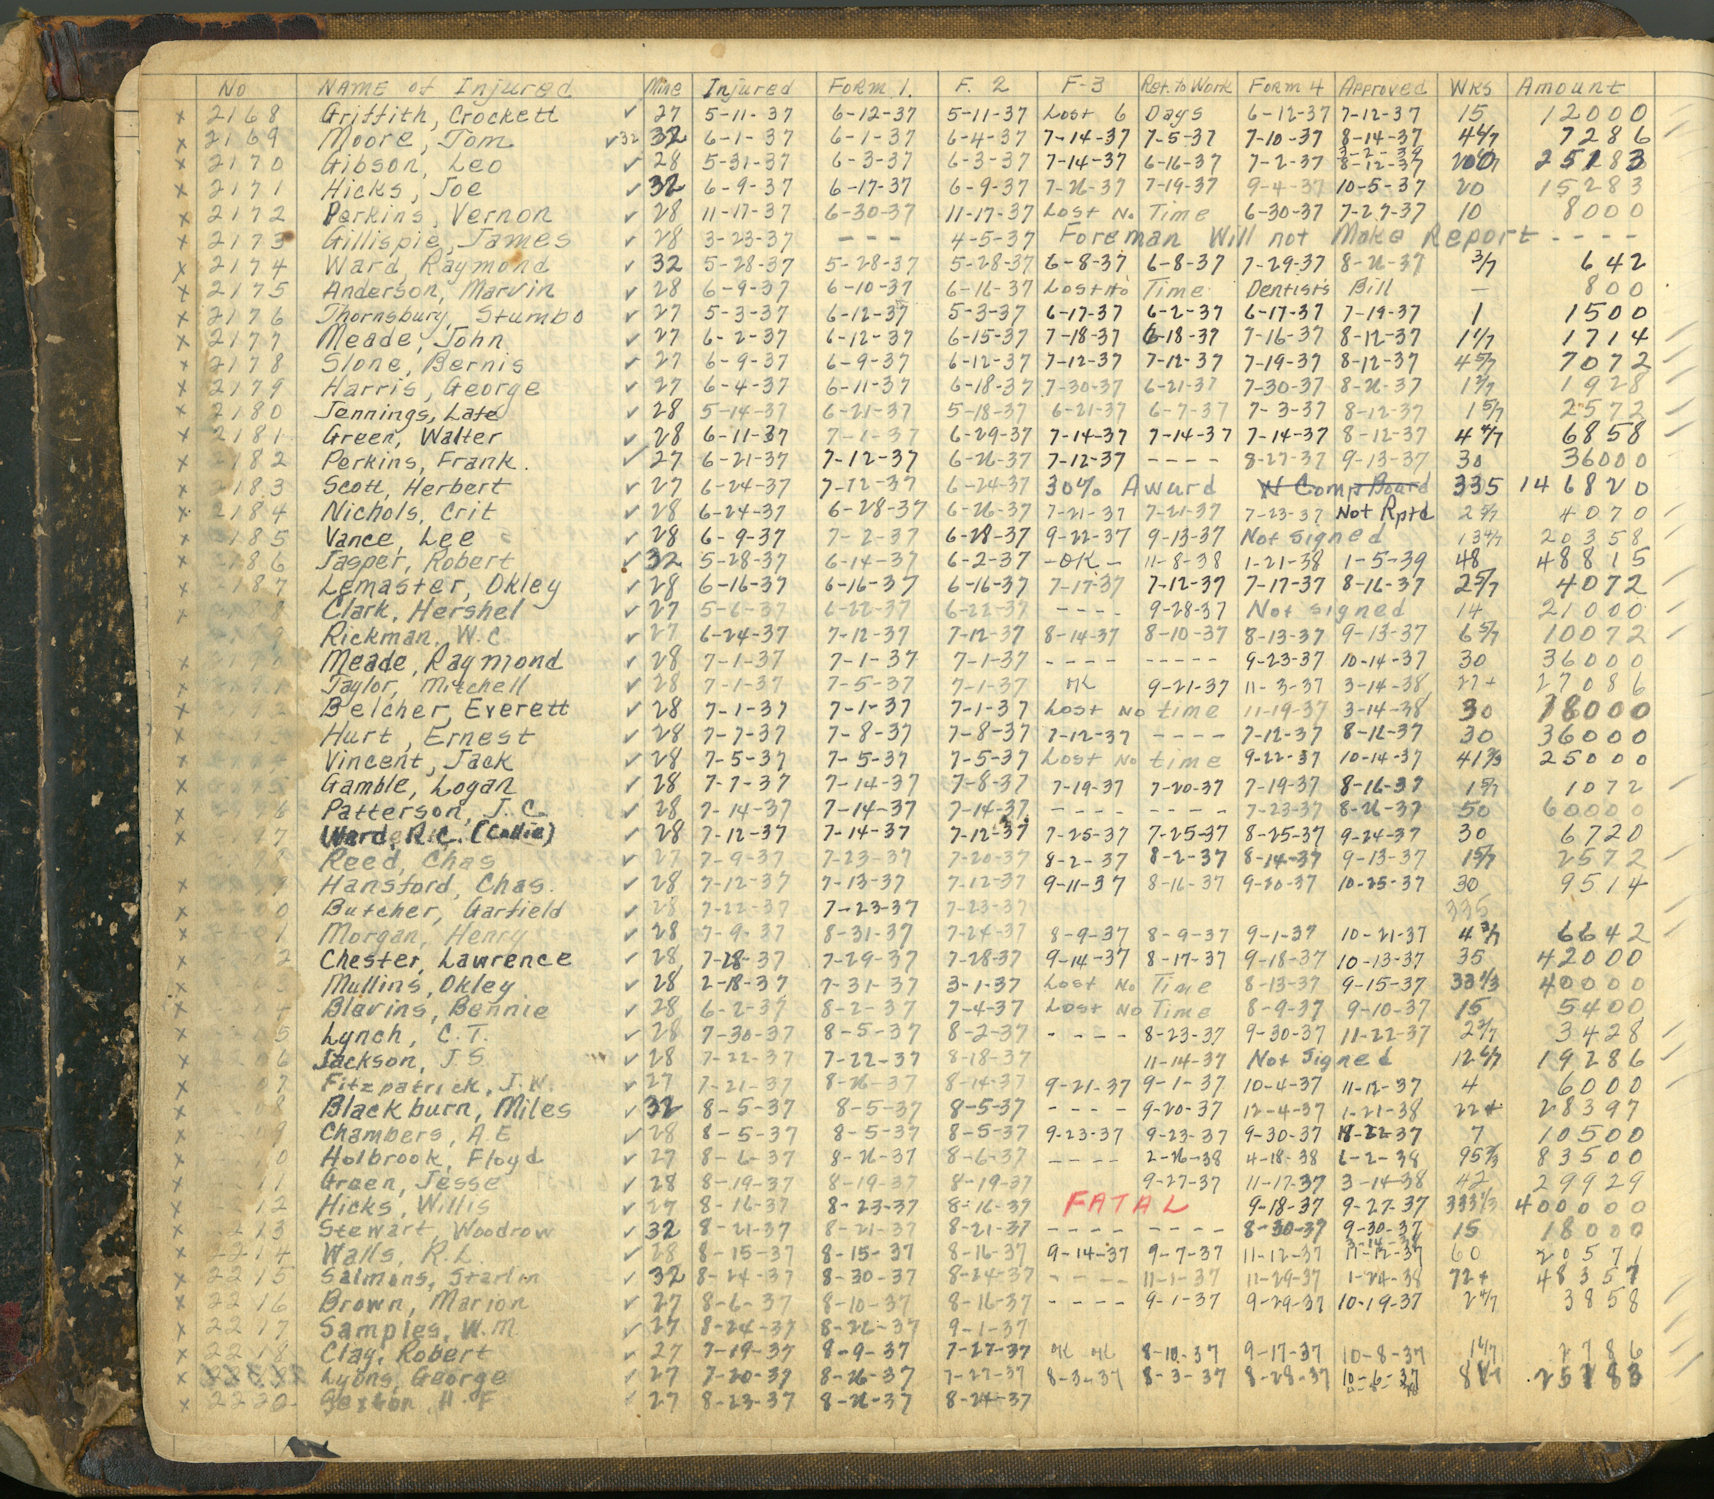 No NAME of Injured Mine Injured Form 1. F. 2 F-3 Ret. to Work Form 4 Approved Wks Amount
x 2168 Griffith, Crockett ✓ 27 5-11-37 6-12-37 5-11-37 Lost 6 Days 6-12-37 7-12-37 15 12000
x 2169 Moore, Tom ✓32 32 6-1-37 6-1-37 6-4-37 7-14-37 7-5-37 7-10-37 8-14-37 4 6/7 7286
x 2170 Gibson, Leo ✓ 28 5-31-37 6-3-37 6-3-37 7-14-37 6-16-37 7-2-37 8-12-37 25183
x 2171 Hicks, Joe ✓ 32 6-9-37 6-17-37 6-9-37 7-26-37 7-19-37 9-4-37 10-5-37 20 15283
x 2172 Perkins, Vernon ✓ 28 11-17-37 6-30-37 11-17-37 Lost No Time 6-30-37 7-27-37 10 8000
x 2173 Gillispie, James ✓ 28 3-23-37 --- 4-5-37 Foreman Will not Make Report ----
x 2174 Ward, Raymond ✓ 32 5-28-37 5-28-37 5-28-37 6-8-37 6-8-37 7-29-37 8-26-37 3/7 642
x 2175 Anderson, Marvin ✓ 28 6-9-37 6-10-37 6-16-37 Lost No Time Dentists Bill — 800
x 2176 Thornsbury, Stumbo ✓ 27 5-3-37 6-12-37 5-3-37 6-17-37 6-2-37 6-17-37 7-19-37 1 1500
x 2177 Meade, John ✓ 27 6-2-37 6-12-37 6-15-37 7-18-37 6-18-37 7-16-37 8-12-37 1 1/7 1714
x 2178 Slone, Bernis ✓ 27 6-9-37 6-9-37 6-12-37 7-12-37 7-12-37 7-19-37 8-12-37 4 5/7 7072
x 2179 Harris, George ✓ 27 6-4-37 6-11-37 6-18-37 7-30-37 6-21-37 7-30-37 8-26-37 1 2/7 1928
x 2180 Jennings, Late ✓ 28 5-14-37 6-21-37 5-18-37 6-21-37 6-7-37 7-3-37 8-12-37 1 5/7 2572
x 2181 Green, Walter ✓ 28 6-11-37 7-1-37 6-29-37 7-14-37 7-14-37 7-14-37 8-12-37 4 4/7 6858
x 2182 Perkins, Frank. ✓ 27 6-21-37 7-12-37 6-26-37 7-12-37 ---- 8-27-37 9-13-37 30 36000
x 2183 Scott, Herbert ✓ 27 6-24-37 7-12-37 6-24-37 30% Award Comp Board 335 146820
x 2184 Nichols, Crit ✓ 28 6-24-37 6-28-37 6-26-37 7-21-37 7-21-37 7-23-37 Not Rptd 2 5/7 4070
x 2185 Vance, Lee ✓ 28 6-9-37 7-2-37 6-28-37 9-22-37 9-13-37 Not signed 13 4/7 20358
x 2186 Jasper, Robert ✓ 32 5-28-37 6-14-37 6-2-37 -OK- 11-8-38 1-21-38 1-5-39 48 48815
x 2187 Lemaster, Okley ✓ 28 6-16-37 6-16-37 6-16-37 7-17-37 7-12-37 7-17-37 8-16-37 2 5/7 4072
x Clark, Hershel ✓ 27 5-6-37 6-22-37 6-22-37 ---- 9-28-37 Not signed 14 21000
Rickman, W.C. ✓ 27 6-24-37 7-12-37 7-12-37 8-14-37 8-10-37 8-13-37 9-13-37 6 5/7 10072
x Meade, Raymond ✓ 28 7-1-37 7-1-37 7-1-37 ---- ----- 9-23-37 10-14-37 30 36000
x Taylor, Mitchell ✓ 28 7-1-37 7-5-37 7-1-37 OK 9-21-37 11-3-37 3-14-38 27+ 27086
x Belcher, Everett ✓ 28 7-1-37 7-1-37 7-1-37 Lost No time 11-19-37 3-14-38 30 18000
x Hurt, Ernest ✓ 28 7-7-37 7-8-37 7-8-37 7-12-37 ---- 7-12-37 8-12-37 30 36000
x Vincent, Jack ✓ 28 7-5-37 7-5-37 7-5-37 Lost No time 9-22-37 10-14-37 41 2/3 25000
x Gamble, Logan ✓ 28 7-7-37 7-14-37 7-8-37 7-19-37 7-20-37 7-19-37 8-16-37 1 5/7 1072
x Patterson, J.C. ✓ 28 7-14-37 7-14-37 7-14-37 ---- ---- 7-23-37 8-26-37 50 60000
x Ward, R.C. (Callie) ✓ 28 7-12-37 7-14-37 7-12-37 7-25-37 7-25-37 8-25-37 9-24-37 30 6720
Reed, Chas ✓ 27 7-9-37 7-23-37 7-20-37 8-2-37 8-2-37 8-14-37 9-13-37 1 5/7 2572
x Hansford, Chas. ✓ 28 7-12-37 7-13-37 7-12-37 9-11-37 8-16-37 9-20-37 10-25-37 30 9514
x Butcher, Garfield ✓ 28 7-22-37 7-23-37 7-23-37 335
x Morgan, Henry ✓ 28 7-9-37 8-31-37 7-24-37 8-9-37 8-9-37 9-1-37 10-21-37 4 3/7 6642
x Chester, Lawrence ✓ 28 7-28-37 7-29-37 7-28-37 9-14-37 8-17-37 9-18-37 10-13-37 35 42000
x Mullins, Okley ✓ 28 2-18-37 7-31-37 3-1-37 Lost No Time 8-13-37 9-15-37 33 1/3 40000
x Blevins, Bennie ✓ 28 6-2-37 8-2-37 7-4-37 Lost No Time 8-9-37 9-10-37 15 5400
x Lynch, C.T. ✓ 28 7-30-37 8-5-37 8-2-37 ---- 8-23-37 9-30-37 11-22-37 2 2/7 3428
x Jackson, J.S. ✓ 28 7-22-37 7-22-37 8-18-37 11-14-37 Not Signed 12 6/7 19286
x Fitzpatrick, J.W. ✓ 27 7-21-37 8-26-37 8-14-37 9-21-37 9-1-37 10-4-37 11-12-37 4 6000
x Blackburn, Miles ✓ 32 8-5-37 8-5-37 8-5-37 ---- 9-20-37 12-4-37 1-21-38 22+ 28397
x Chambers, A.E ✓ 28 8-5-37 8-5-37 8-5-37 9-23-37 9-23-37 9-30-37 7 10500
x Holbrook, Floyd ✓ 27 8-6-37 8-26-37 8-6-37 ---- 2-26-38 4-18-38 6-2-38 95 2/3 83500
x Green, Jesse ✓ 28 8-19-37 8-19-37 8-19-37 9-27-37 11-17-37 3-14-38 42 29929
x Hicks, Willis ✓ 27 8-16-37 8-23-37 8-16-37 FATAL 9-18-37 9-27-37 333 1/3 400000
x 2213 Stewart, Woodrow ✓ 32 8-21-37 8-21-37 8-21-37 ---- ---- 8-30-37 9-30-37 15 18000
x 2214 Walls, R.L. ✓ 28 8-15-37 8-15-37 8-16-37 9-14-37 9-7-37 11-12-37 11-12-37 60 20571
x 2215 Salmons, Starlin ✓ 32 8-24-37 8-30-37 8-24-37 ---- 11-1-37 11-29-37 1-24-38 72+ 48357
x 2216 Brown, Marion ✓ 27 8-6-37 8-10-37 8-16-37 ---- 9-1-37 9-29-37 10-19-37 2 4/7 3858
x 2217 Samples, W.M. ✓ 27 8-24-37 8-26-37 9-1-37
x 2218 Clay, Robert ✓ 27 7-19-37 8-9-37 7-27-37 OK OK 8-10-37 9-17-37 10-8-37 1 6/7 2786
x Lyons, George ✓ 27 7-20-37 8-26-37 7-27-37 8-3-37 8-3-37 8-28-37 10-6-37 25183
x 2220 Sexton, H.F ✓ 27 8-23-37 8-26-37 8-24-37